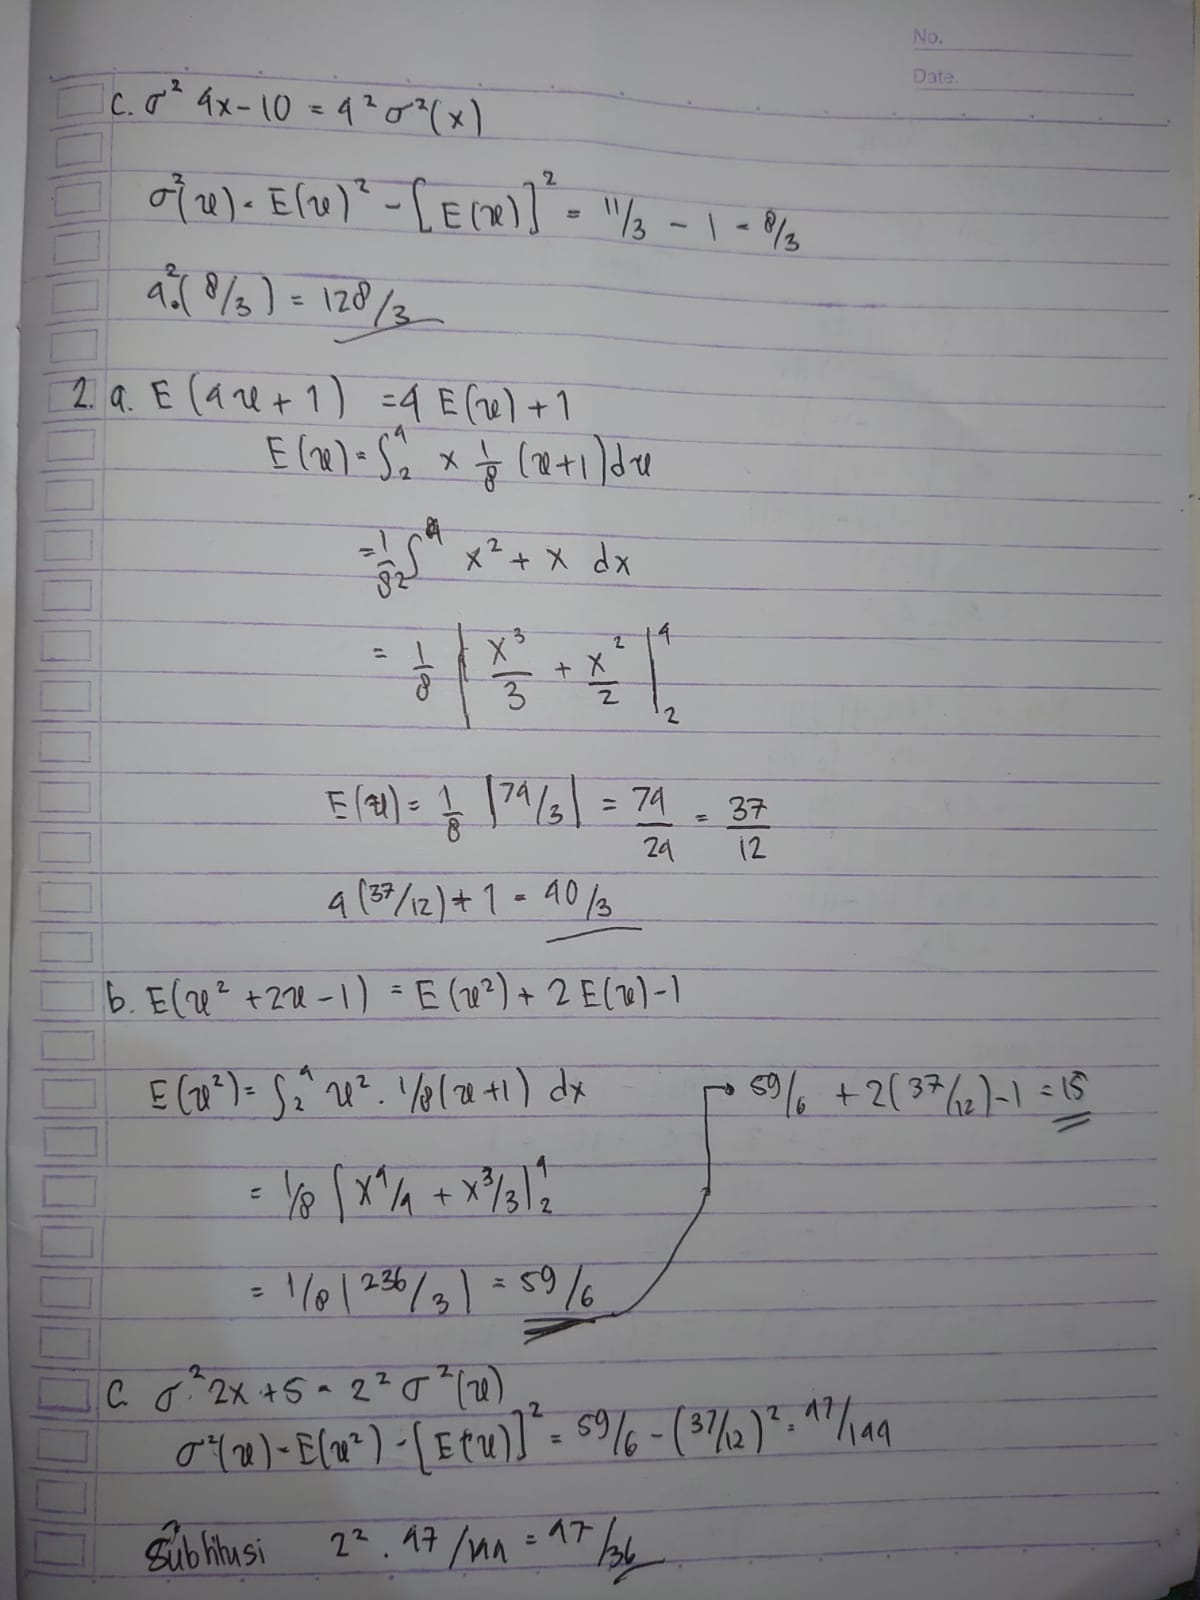 No.
Date.
c. σ² 4x - 10 = 4² σ²(x)
σ²(x) = E(x)² - [E(x)]² = 11/3 - 1 = 8/3
4².(8/3) = 128/3
2. a. E(4x + 1) = 4 E(x) + 1
E(x) = ∫₂⁴ x 1/8 (x+1) dx
= 1/8 ₂∫⁴ x² + x dx
= 1/8 | x³/3 + x²/2 |₂⁴
E(x) = 1/8 |74/3| = 74/24 = 37/12
4(37/12) + 1 = 40/3
b. E(x² + 2x - 1) = E(x²) + 2 E(x) - 1
E(x²) = ∫₂⁴ x² . 1/8(x+1) dx → 59/6 + 2(37/12) - 1 = 15
= 1/8 [x⁴/4 + x³/3|₂⁴
= 1/8 |236/3| = 59/6
c. σ² 2x + 5 = 2² σ²(x)
σ²(x) = E(x²) - [E(x)]² = 59/6 - (37/12)² = 47/144
Subtitusi 2² . 47/144 = 47/36